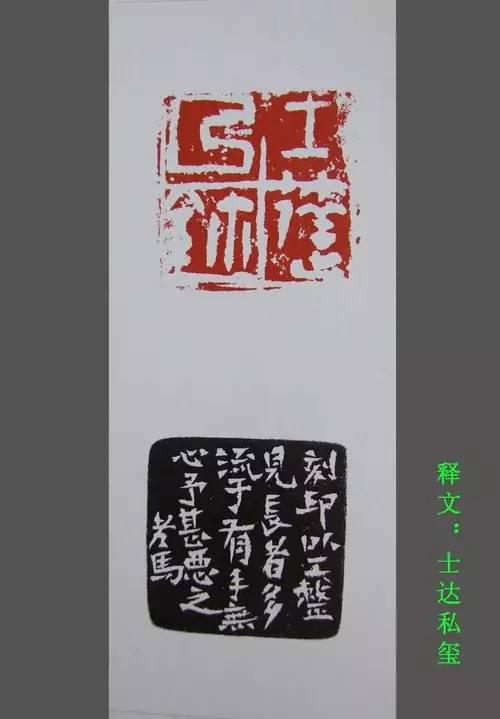 士達
厶鉨
刻印以工整
見長者多
流于有手無
心予甚惡之
老馬
释文：士达私玺